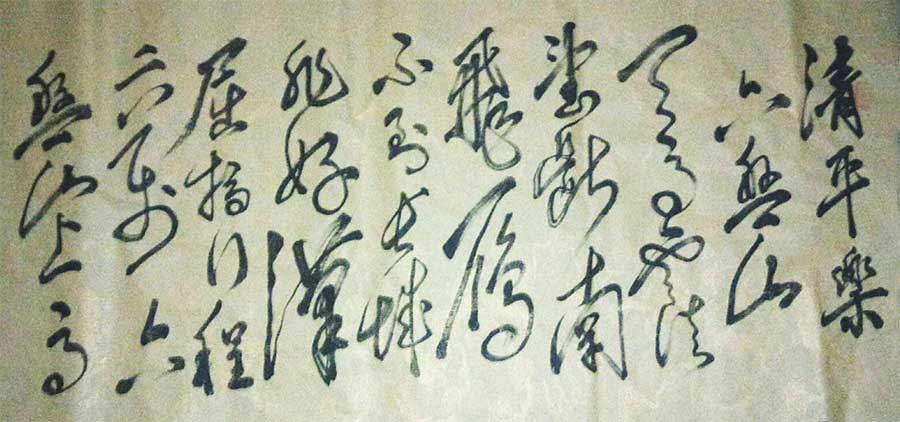 清平樂
六盤山
天高雲淡
望斷南
飛雁
不到長城
非好漢
屈指行程
二萬六
盤山上高